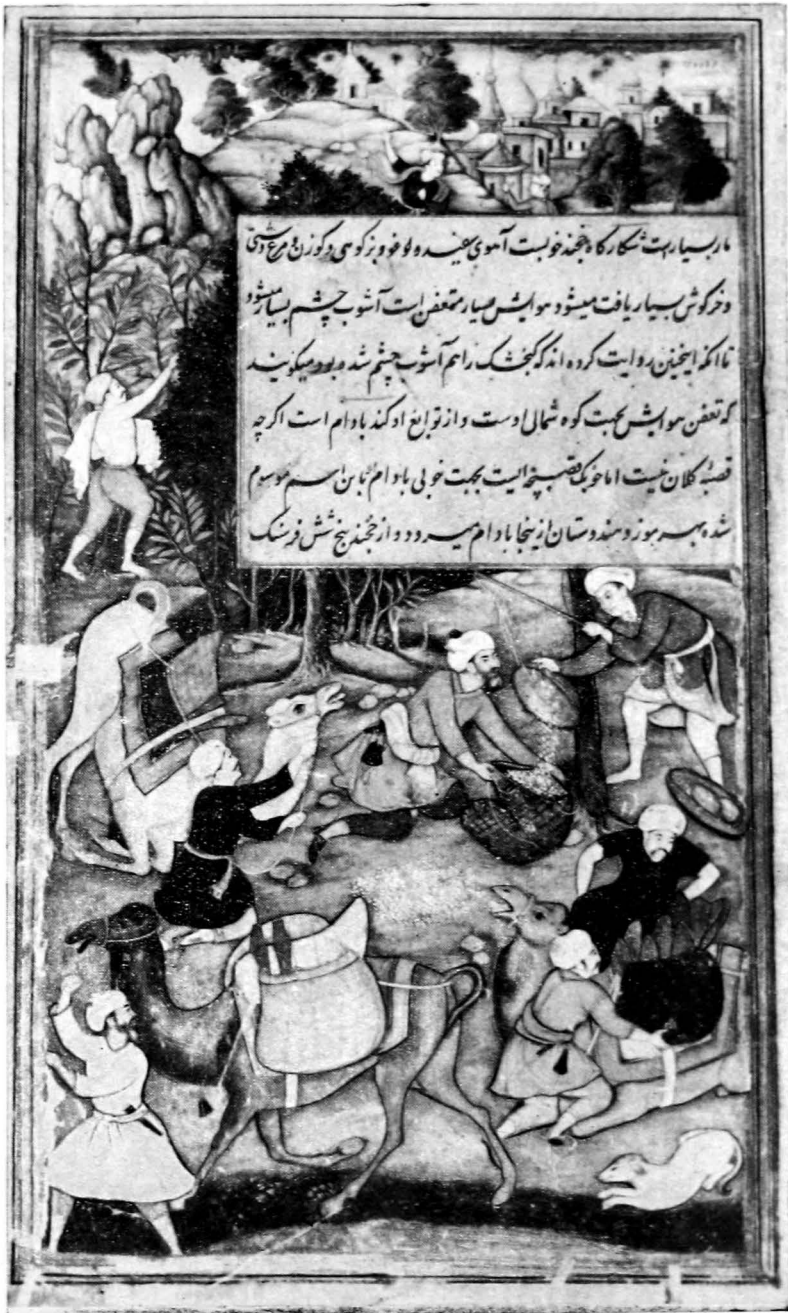 مار بسیار است شکارگاه خجند خوبست آهوی سفید و بز کوهی و گوزن و مرغ دشتی
و خرگوش بسیار یافت میشود هوایش بسیار متعفن است آشوب چشم بسیار میشود
تا آنکه اینچنین روایت کرده اند که کنجشک را هم آشوب چشم شده بود میگویند
که تعفن هوایش بجهت کوه شمالی اوست و از توابع او کند بادام است اگرچه
قصبه کلان نیست اما خوبک قصبچه ایست بجهت خوبی بادام باین اسم موسوم
شده بهرموز و هندوستان ازینجا بادام میرود و از خجند پنج شش فرسنک